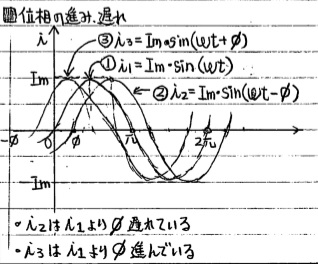 図位相の進み.遅れ
i
③i₃=Im・sin(ωt+φ)
①i₁=Im・sin(ωt)
Im
②i₂=Im・sin(ωt-φ)
-φ 0 φ π 2π
-Im
・i₂はi₁よりφ遅れている
・i₃はi₁よりφ進んでいる